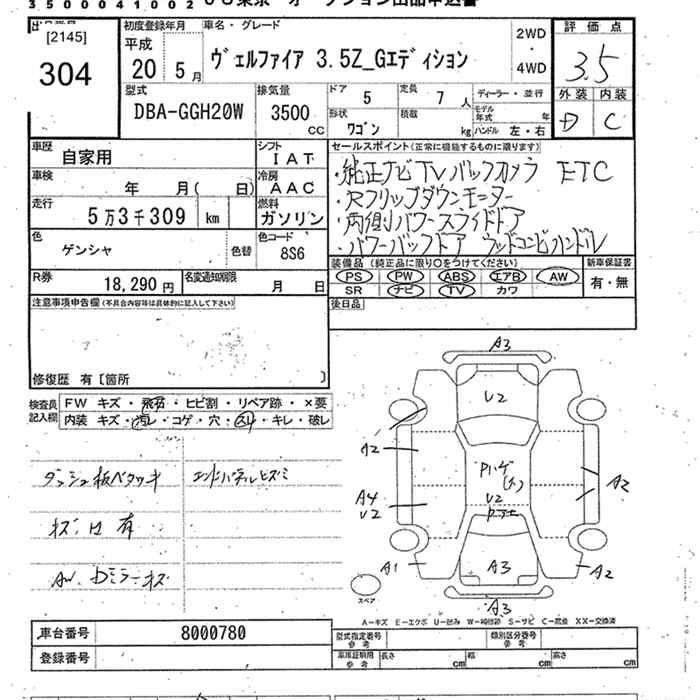 35000410002
[2145]
304
初度登録年月
平成
20 5月
車名・グレード
ヴェルファイア 3.5Z_Gエディション
2WD
・
4WD
評価点
3.5
外装 内装
D C
型式
DBA-GGH20W
排気量
3500
CC
ドア
5
定員
7 人
ディーラー・並行
形状
ワゴン
積載
kg
モデル年式 年
ハンドル 左・右
車歴
自家用
シフト
IAT
車検
年 月( 日)
冷房
AAC
走行
5万3千309 km
燃料
ガソリン
色
ゲンシャ
色替
色コード
8S6
R券
18,290円
名変通知期限
月 日
セールスポイント(正常に機能するものに限ります)
・純正ナビ TV バックカメラ ETC
・Rフリップダウンモニター
・両側パワースライドドア
・パワーバックドア ウッドコンビハンドル
装備品(純正品に限り○をつけてください)
PS PW ABS エアB AW
SR ナビ TV カワ
新車保証書
有・無
後日品
注意事項申告欄(不具合内容等は具体的に記入して下さい)
修復歴 有〔箇所 〕
検査員記入欄
FW キズ・飛石・ヒビ割・リペア跡・×要
内装 キズ・汚レ・コゲ・穴・凹ミ・キレ・破レ
ダッシュ板ベタツキ
エンドパネルヒズミ
キズ凹有
AW、Dミラーキズ
A3
U2
A2
A4
U2
A1
U2
A3
A2
A2
A3
スペア
A-キズ E-エクボ U-凹み W-補修跡 S-サビ C-腐蝕 XX-交換済
車台番号
8000780
登録番号
型式指定番号
参考
類別区分番号
参考
車庫証明用
参考
長さ cm
幅 cm
高さ cm